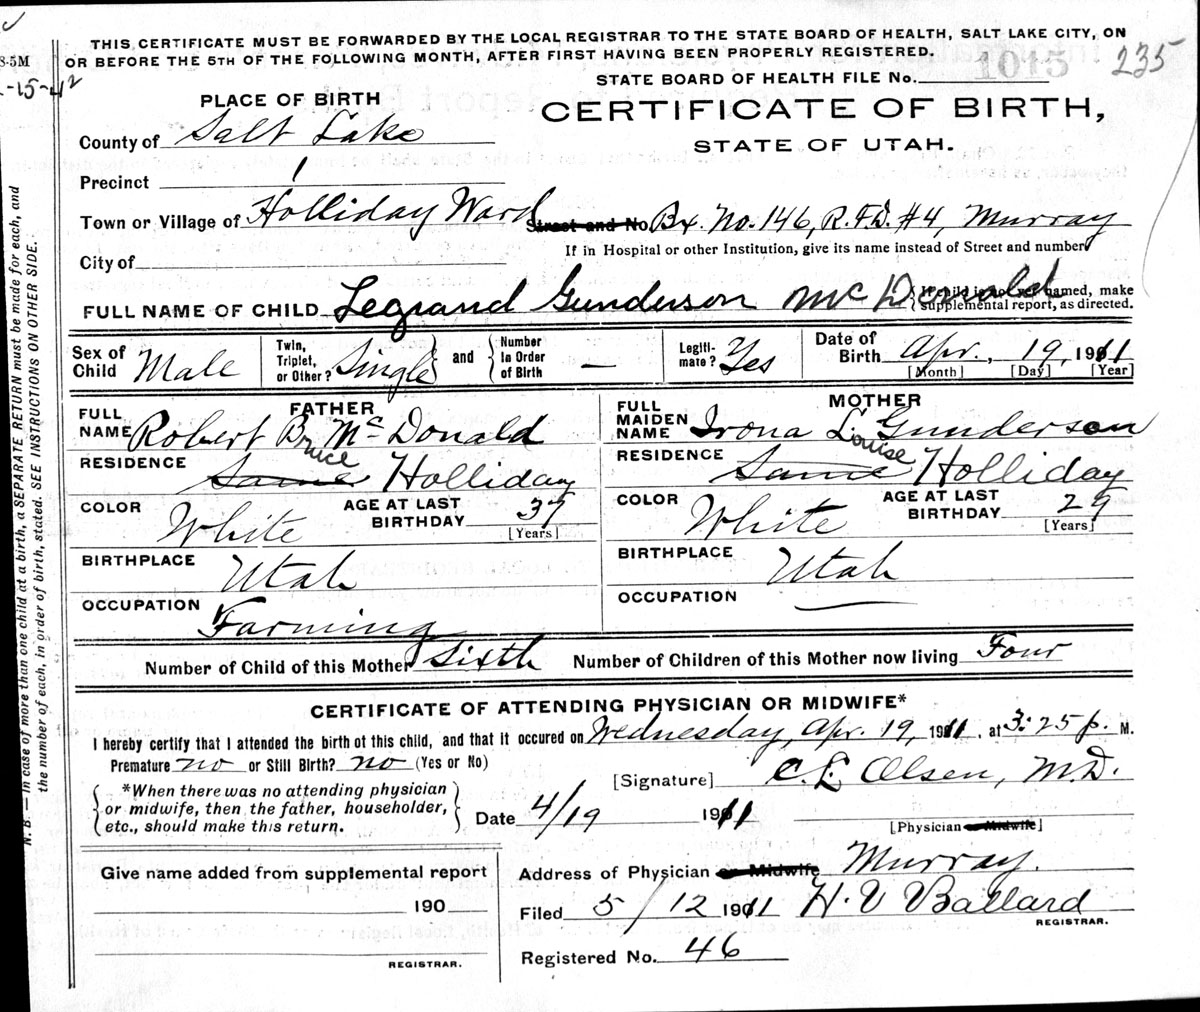 THIS CERTIFICATE MUST BE FORWARDED BY THE LOCAL REGISTRAR TO THE STATE BOARD OF HEALTH, SALT LAKE CITY, ON
8-5M OR BEFORE THE 5TH OF THE FOLLOWING MONTH, AFTER FIRST HAVING BEEN PROPERLY REGISTERED.
-15-42
STATE BOARD OF HEALTH FILE No. 1015 235
PLACE OF BIRTH
CERTIFICATE OF BIRTH,
STATE OF UTAH.
County of Salt Lake
Precinct 1
Town or Village of Holliday Ward Street and No. Bx. No. 146, R.F.D. #4, Murray
If in Hospital or other Institution, give its name instead of Street and number
City of
FULL NAME OF CHILD Legrand Gunderson McDonald { If child is not yet named, make
supplemental report, as directed.
Sex of Child Male
Twin, Triplet, or Other? Single } and { Number in Order of Birth —
Legiti-mate? Yes
Date of Birth Apr. 19, 1911
[Month] [Day] [Year]
FATHER
FULL NAME Robert Bruce McDonald
RESIDENCE Same Holliday
COLOR White AGE AT LAST BIRTHDAY 37 [Years]
BIRTHPLACE Utah
OCCUPATION Farming
MOTHER
FULL MAIDEN NAME Irona Louise Gunderson
RESIDENCE Same Holliday
COLOR White AGE AT LAST BIRTHDAY 29 [Years]
BIRTHPLACE Utah
OCCUPATION —
Number of Child of this Mother Sixth Number of Children of this Mother now living Four
CERTIFICATE OF ATTENDING PHYSICIAN OR MIDWIFE*
I hereby certify that I attended the birth of this child, and that it occured on Wednesday, Apr. 19, 1911, at 3:25 p. M.
Premature no or Still Birth? no (Yes or No)
[Signature] C. L. Olsen, M.D.
{ *When there was no attending physician
or midwife, then the father, householder,
etc., should make this return. }
Date 4/19 1911
[Physician or Midwife]
Give name added from supplemental report
190
REGISTRAR.
Address of Physician or Midwife Murray.
Filed 5/12 1911 H. V Ballard
REGISTRAR.
Registered No. 46
N. B.—In case of more than one child at a birth, a SEPARATE RETURN must be made for each, and
the number of each, in order of birth, stated. SEE INSTRUCTIONS ON OTHER SIDE.